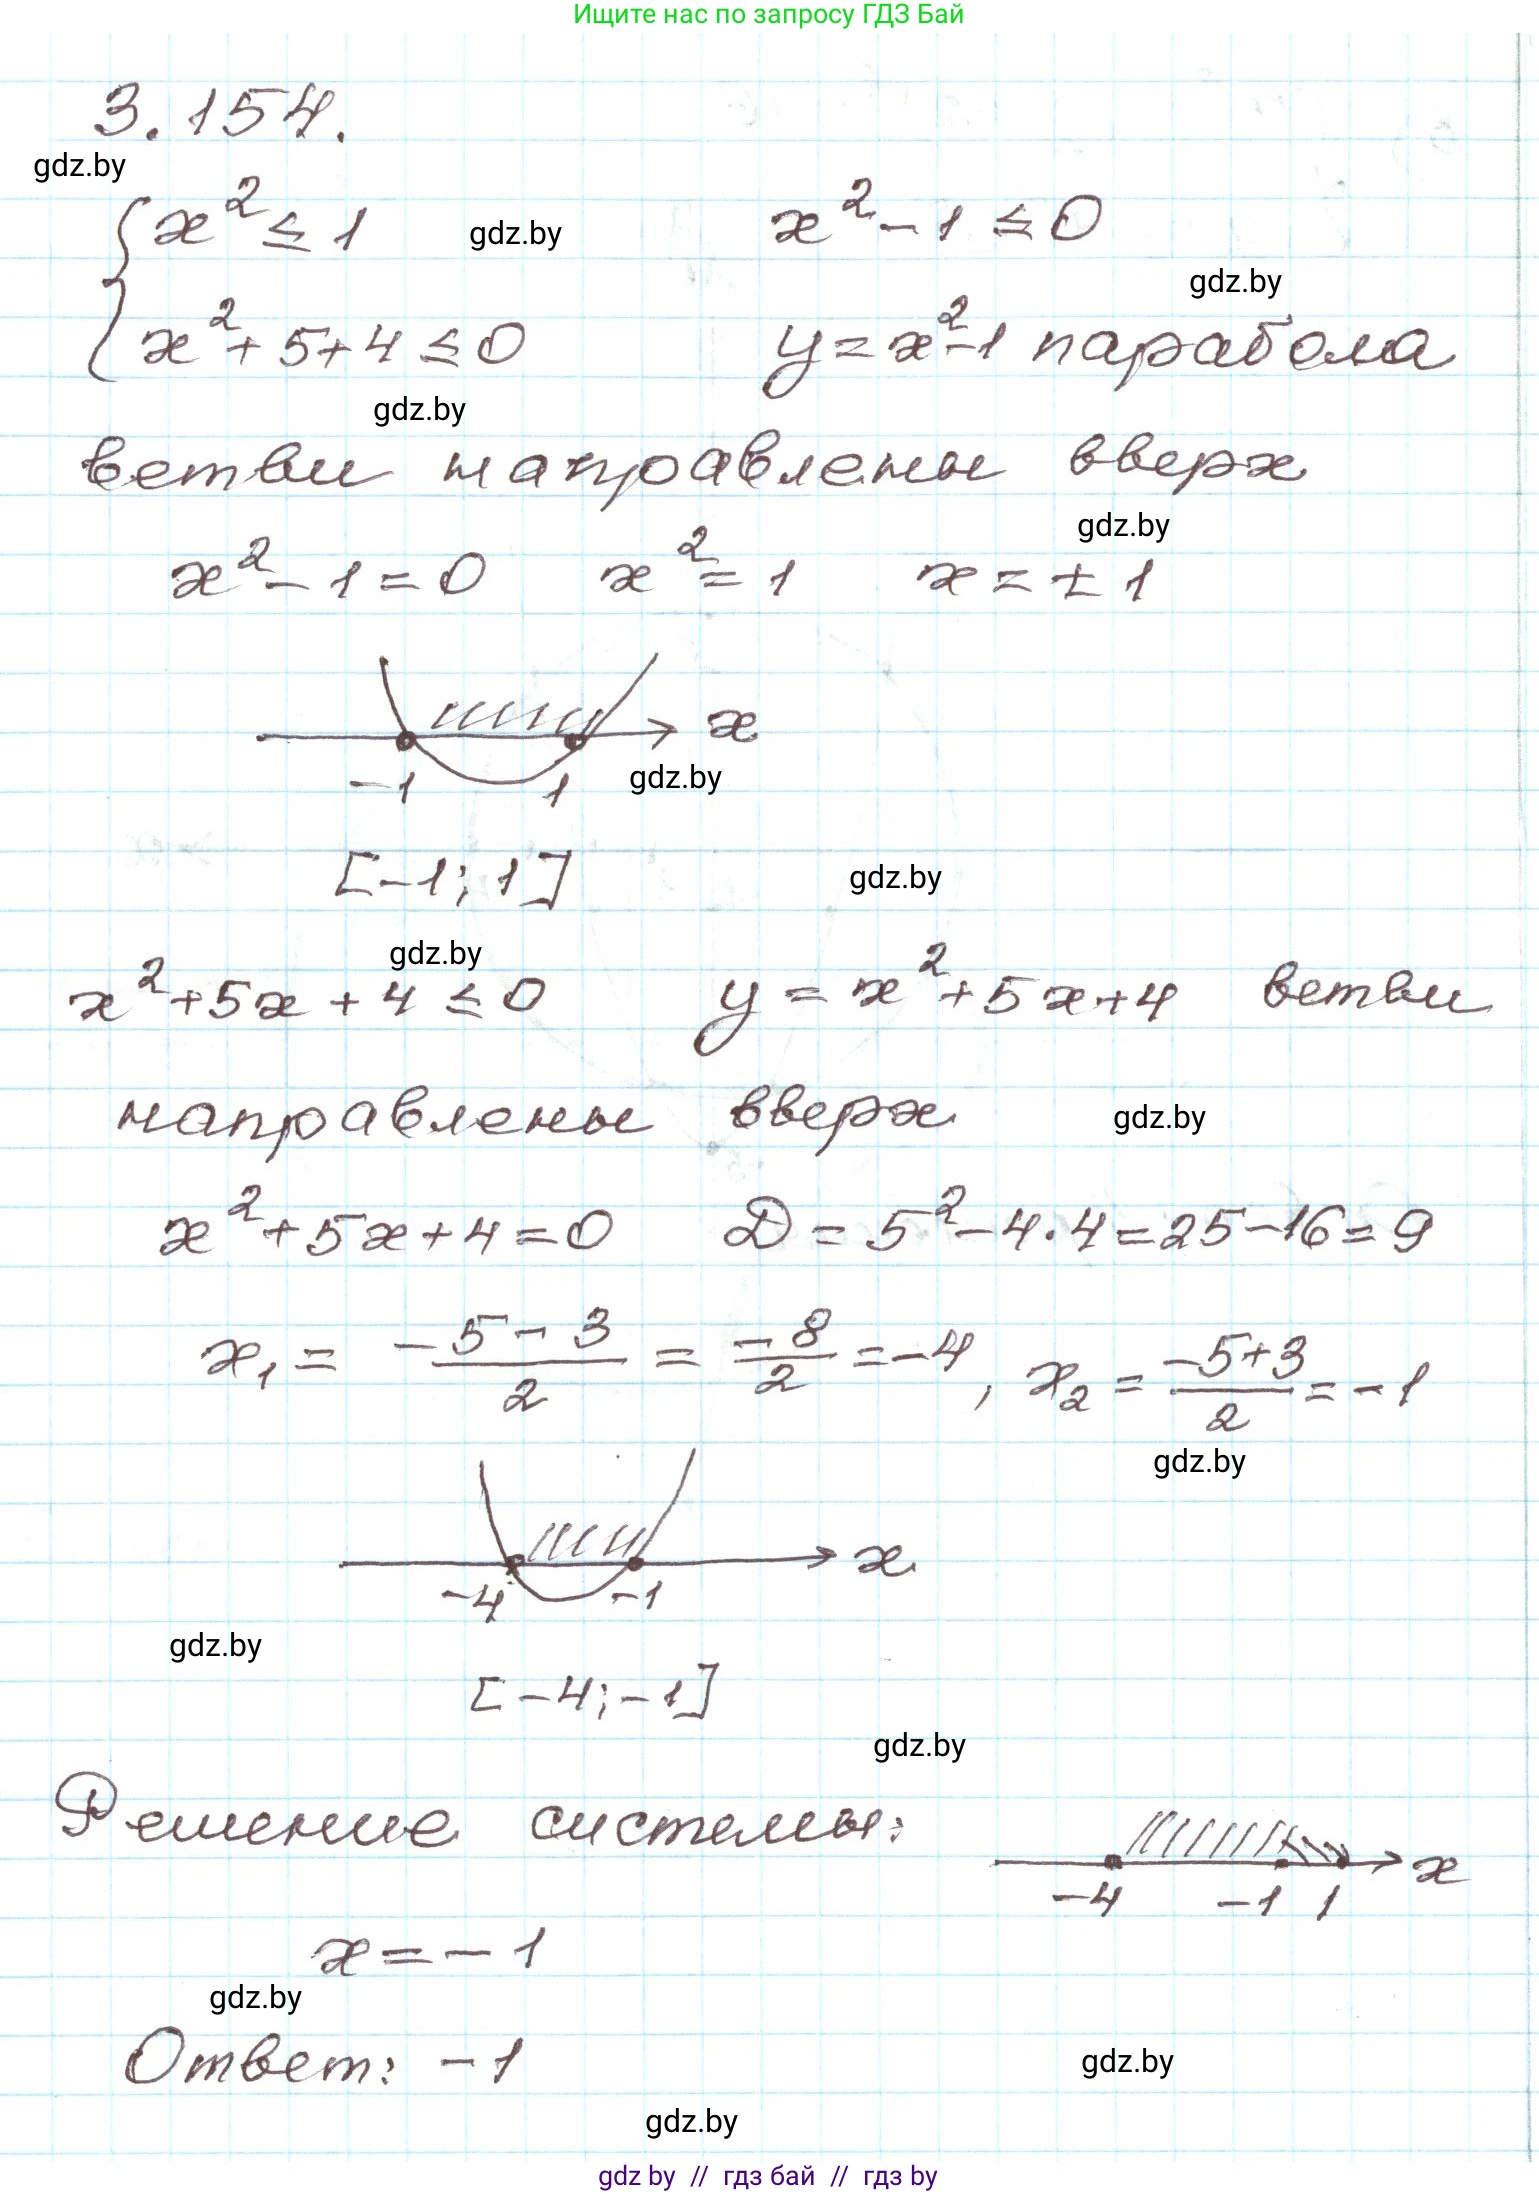 Ищите нас по запросу ГДЗ Бай
3.154.
gdz.by
{ x² ≤ 1 gdz.by x² - 1 ≤ 0
gdz.by
x² + 5 + 4 ≤ 0 y = x² - 1 парабола
gdz.by
ветви направлены вверх
gdz.by
x² - 1 = 0 x² = 1 x = ± 1
x
-1 1 gdz.by
[-1; 1] gdz.by
gdz.by
x² + 5x + 4 ≤ 0 y = x² + 5x + 4 ветви
направлены вверх gdz.by
x² + 5x + 4 = 0 D = 5² - 4·4 = 25 - 16 = 9
x₁ = (-5 - 3)/2 = -8/2 = -4, x₂ = (-5 + 3)/2 = -1
gdz.by
x
-4 -1
gdz.by
[-4; -1]
gdz.by
Решение системы: x
-4 -1 1
x = -1
gdz.by
Ответ: -1 gdz.by
gdz.by
gdz by // гдз бай // гдз by